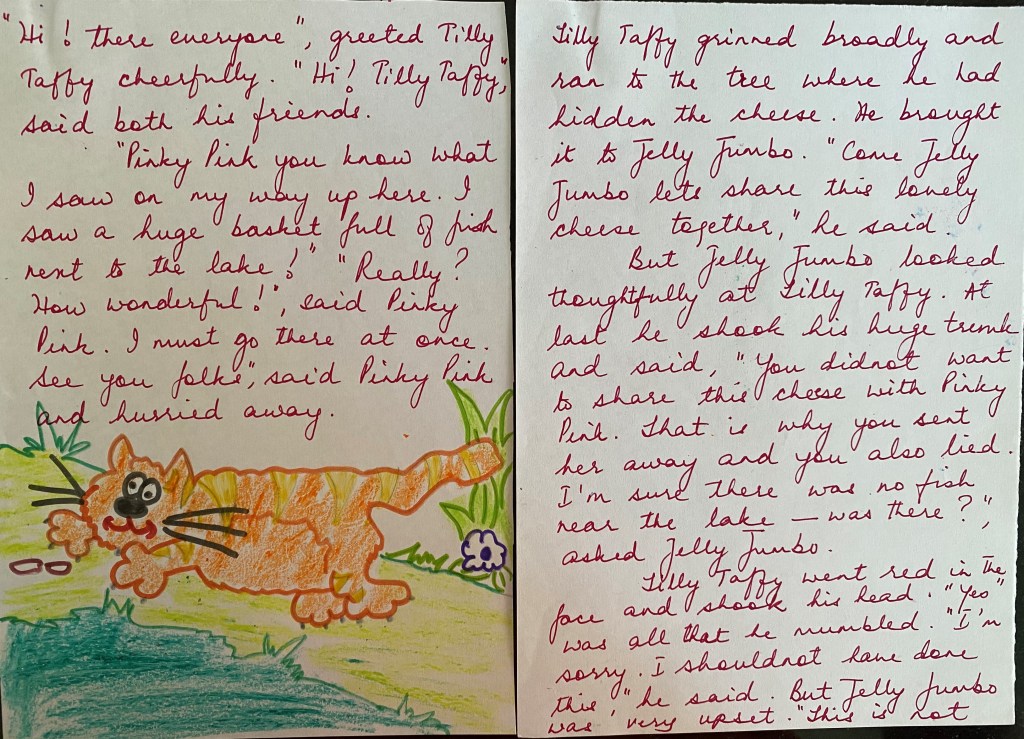 "Hi! there everyone", greeted Tilly
Taffy cheerfully. "Hi! Tilly Taffy,"
said both his friends.
"Pinky Pink you know what
I saw on my way up here. I
saw a huge basket full of fish
next to the lake!" "Really?
How wonderful!", said Pinky
Pink. I must go there at once.
See you folks", said Pinky Pink
and hurried away.
Tilly Taffy grinned broadly and
ran to the tree where he had
hidden the cheese. He brought
it to Jelly Jumbo. "Come Jelly
Jumbo lets share this lovely
cheese together," he said.
But Jelly Jumbo looked
thoughtfully at Tilly Taffy. At
last he shook his huge trunk
and said, "You didnot want
to share this cheese with Pinky
Pink. That is why you sent
her away and you also lied.
I'm sure there was no fish
near the lake — was there?",
asked Jelly Jumbo.
Tilly Taffy went red in the
face and shook his head. "Yes"
was all that he mumbled. "I'm
sorry. I shouldnot have done
this," he said. But Jelly Jumbo
was very upset. "This is not